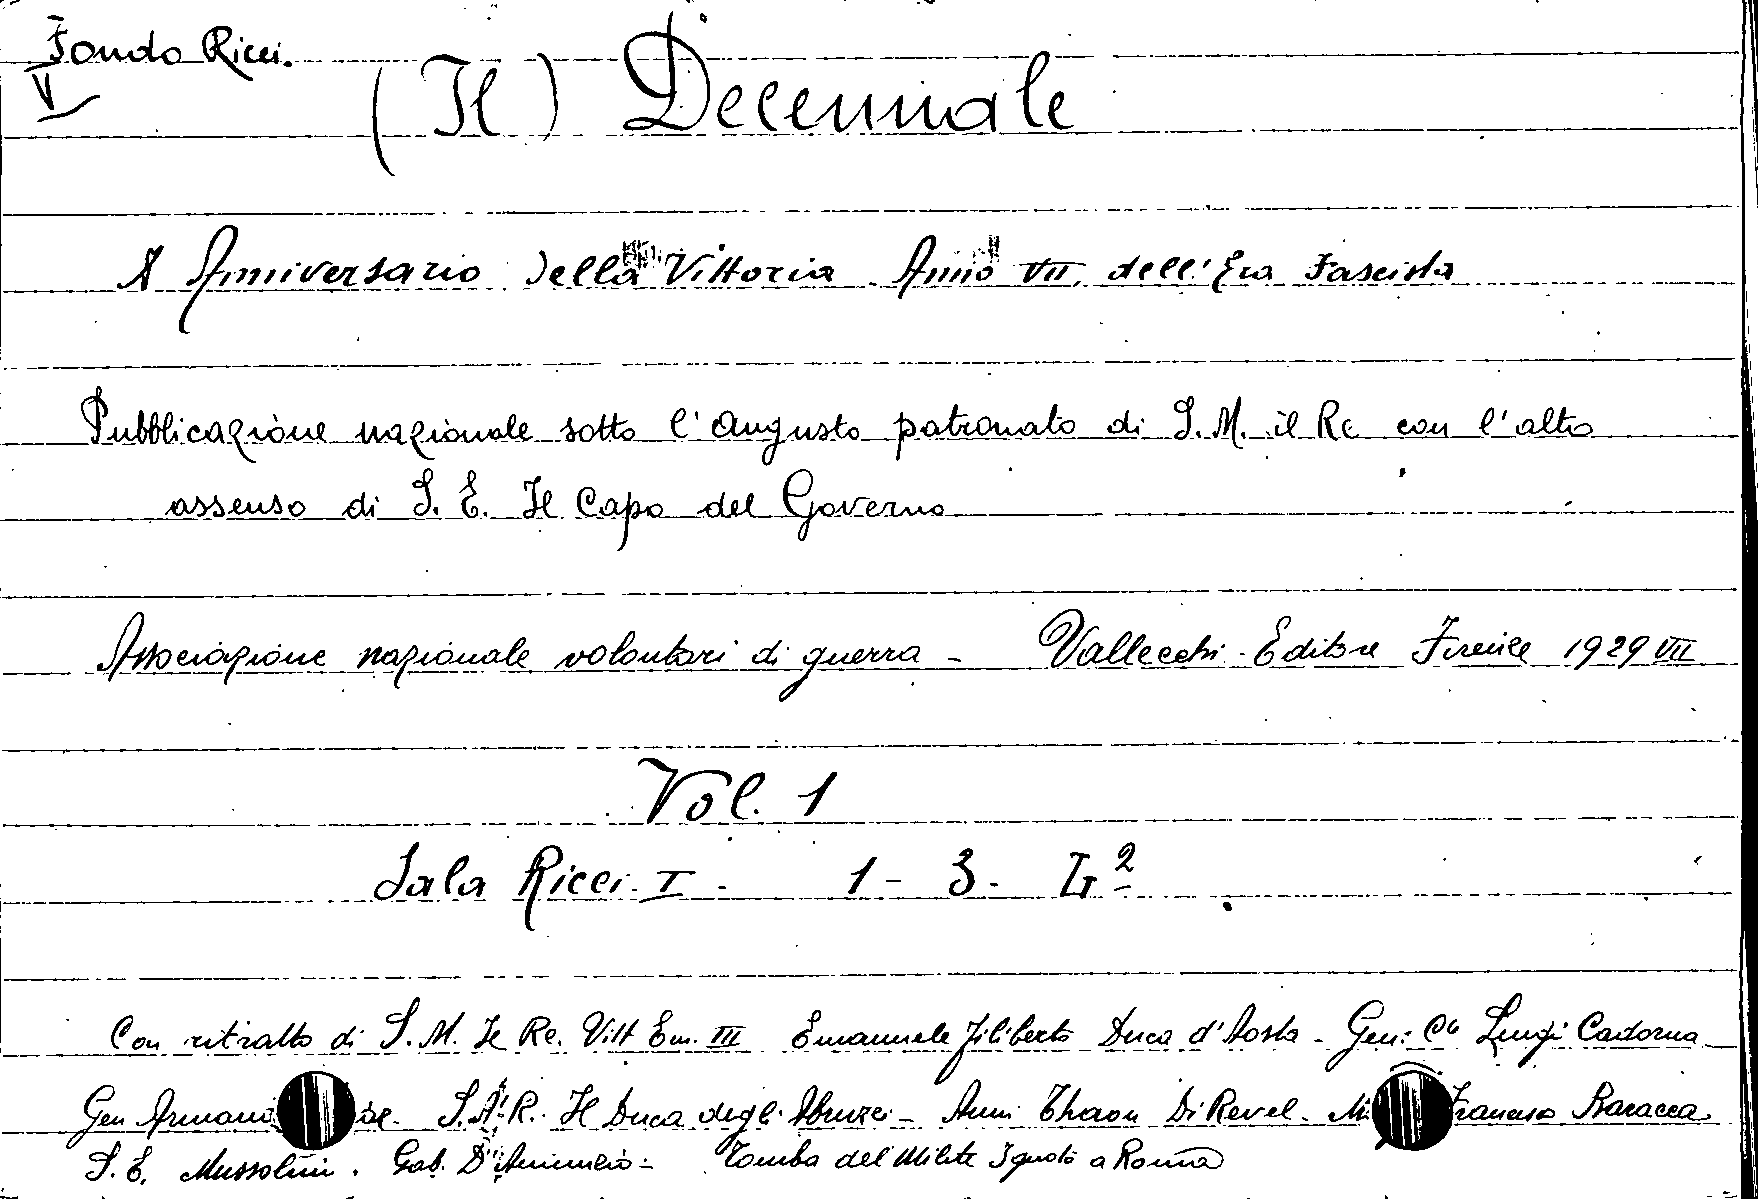 Fondo Ricci.
V
(Il) Decennale
X Anniversario della Vittoria Anno VII dell'Era Fascista
Pubblicazione nazionale sotto l'augusto patronato di S. M. il Re con l'alto
assenso di S. E. Il Capo del Governo
Associazione nazionale volontari di guerra - Vallecchi - Editore Firenze 1929 VII
Vol. 1
Sala Ricci I - 1 - 3 -
Con ritratto di S. M. Il Re. Vitt Em. III Emanuele Filiberto Duca d'Aosta - Gen: Luigi Cadorna
Gen S. A. R. Il Duca degli Abruzzi - Amm. Thaon Di Revel - Francesco Baracca.
S. E. Mussolini. Gab. D'Annunzio - Tomba del Milite Ignoto a Roma